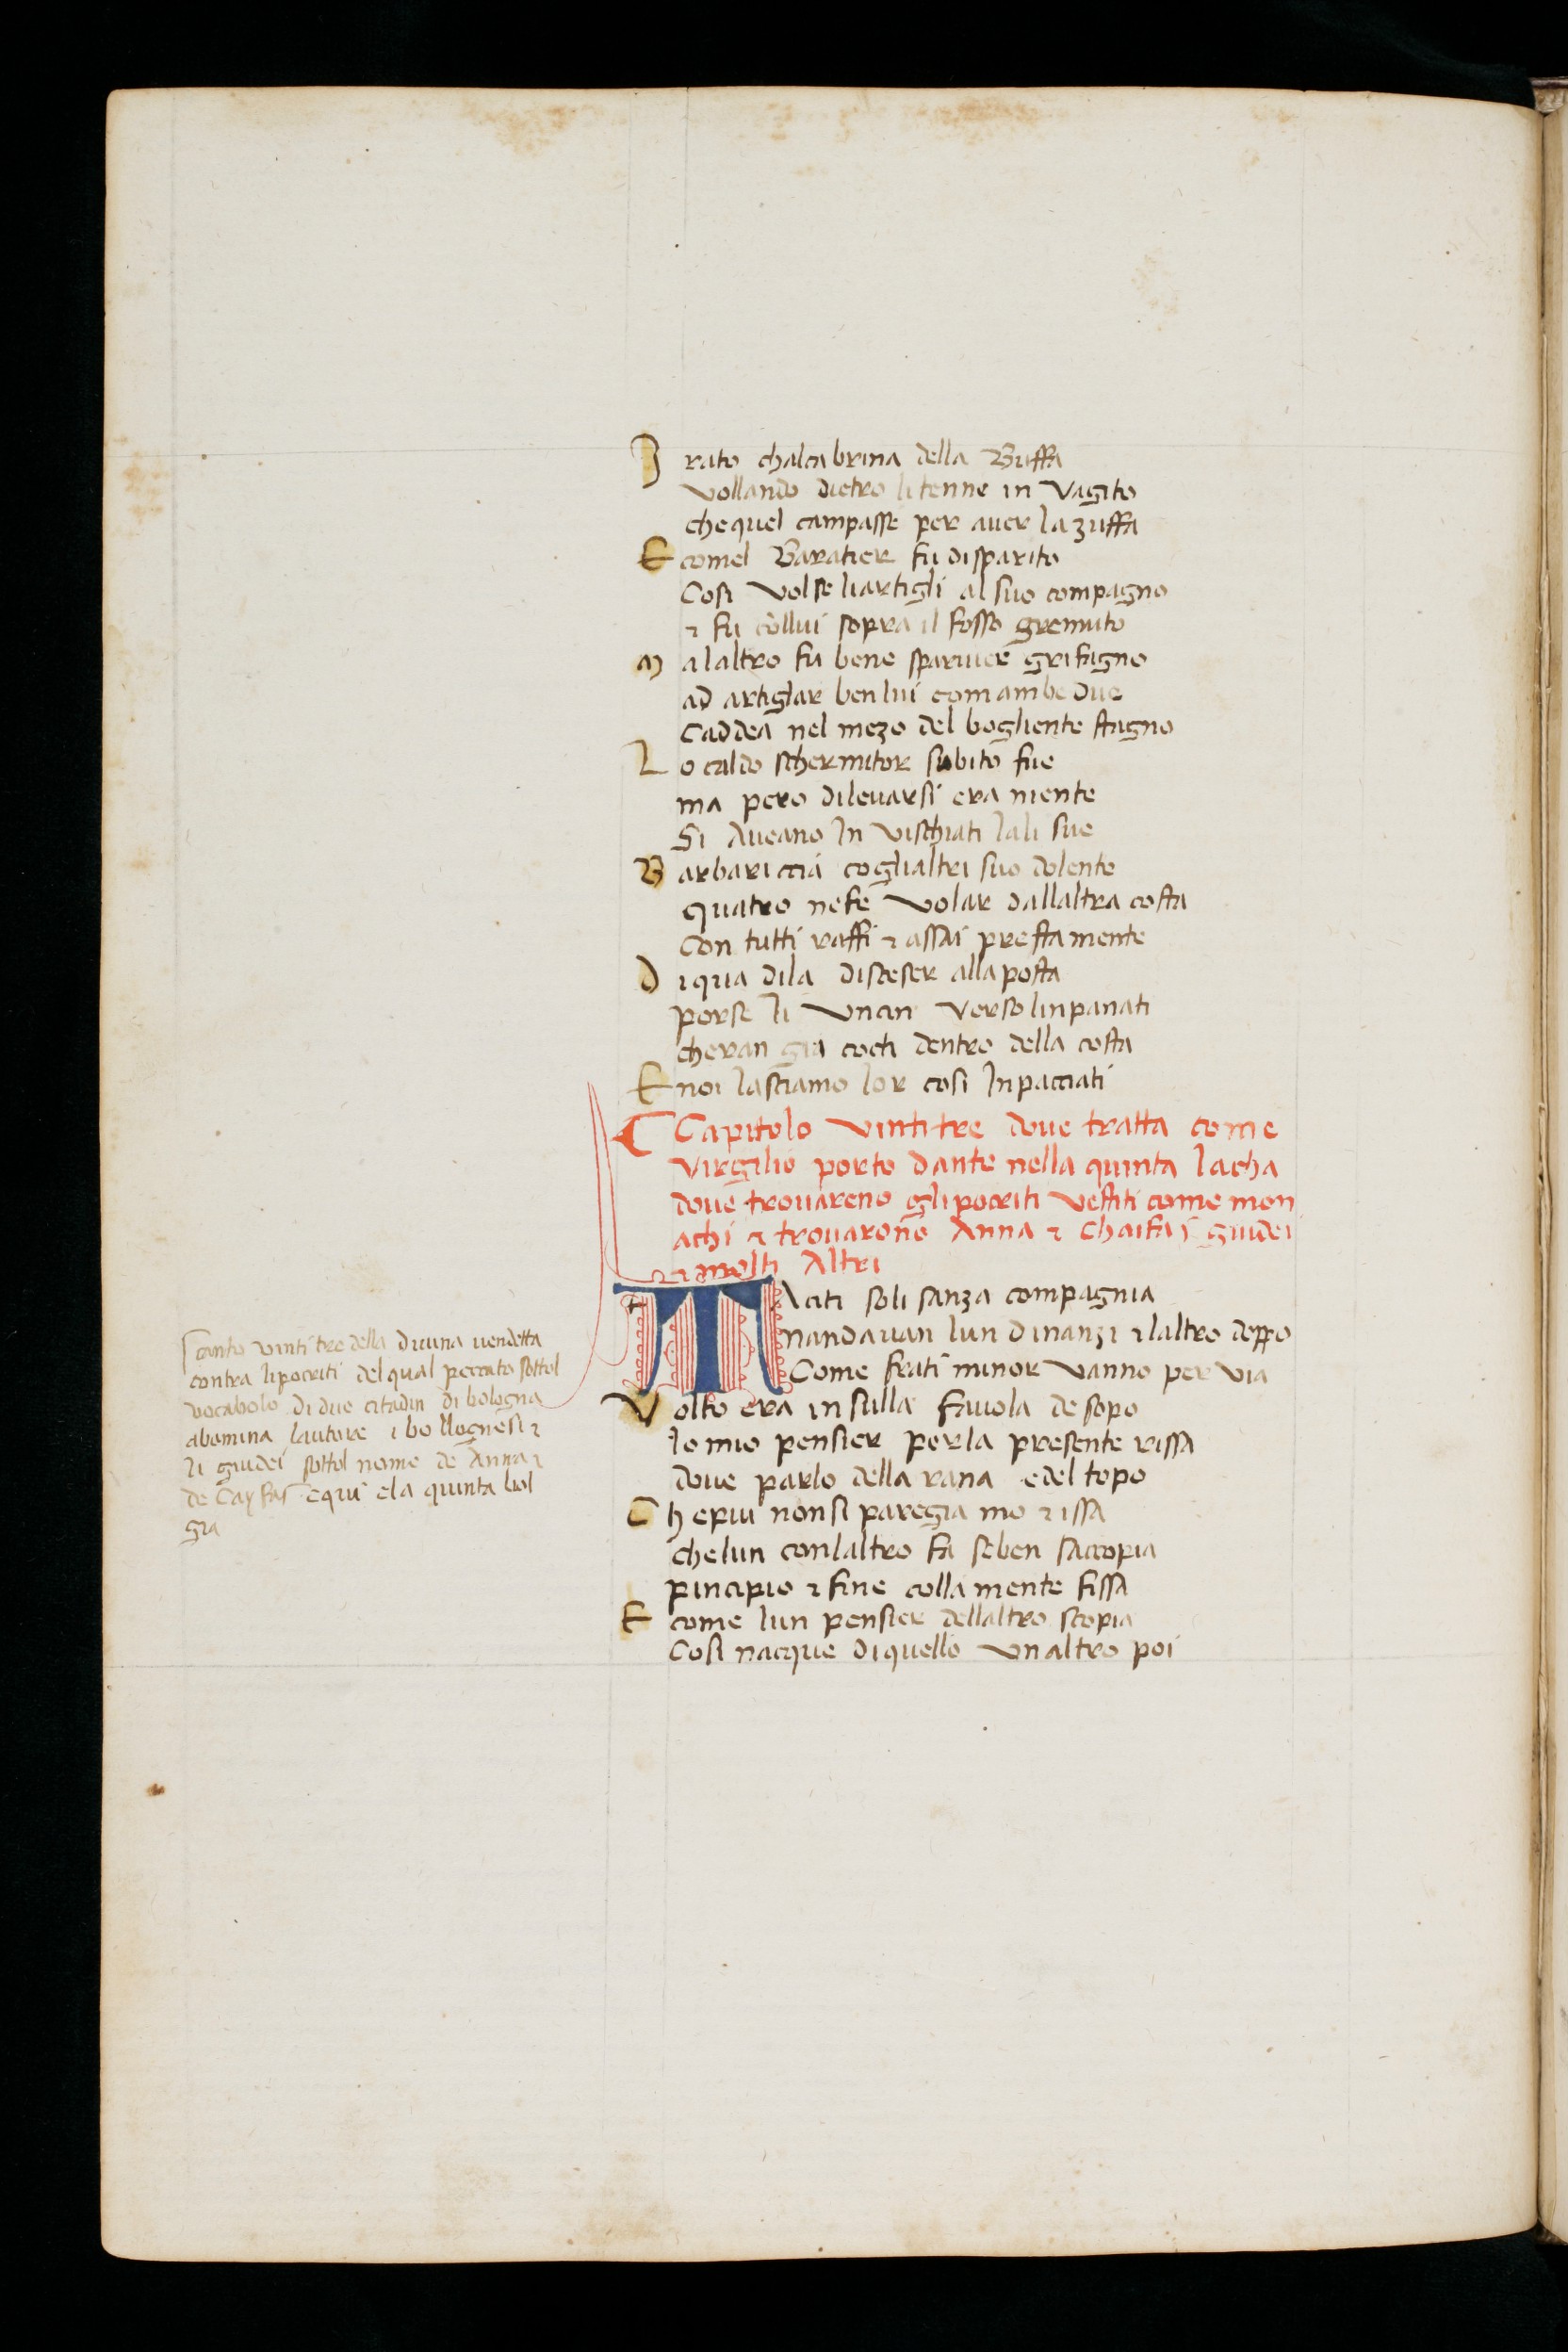 Irato chalcabrina della Buffa
vollando dietro li tenne in vagito
che quel campasse per aver la zuffa
E comel Baratier fu disparito
Cosi volse li artigli al suo compagno
⁊ fu cōllui sopra il fosso gremuto
Ma laltro fu bene sparuier grifagno
ad artigliar ben lui com ambe due
Caddeā nel mezo del bogliente stagno
Lo caldo schermitor subito fue
ma pero dilevarsi era niente
Si Aveano In vischiati lali sue
Barbariccia cogli altri suo dolente
quatro nefe volar dallaltra costa
Con tutti raffi ⁊ assai prestamente
Di qua dila disceser alla posta
porse li uncin verso linpanati
cheran gia cocti dentro della costa
E noi lasciamo lor cosi Inpacciati
Capitolo vintitre dove tratta come
virgilio porto dante nella quinta lacha
dove trovareno glipocriti vestiti come mon
achi ⁊ trovarono Anna ⁊ Chaifas giudei
⁊ molti Altri
TAciti soli sanza compagnia
nandavan lun dinanzi ⁊ laltro deppo
Come frati minor vanno per via
Volto era in sulla favola de sopo
lo mio pensier per la presente rissa
dove parlo della rana e del topo
Che piu non si paregia mo ⁊ issa
che lun con laltro fa se ben saccopia
pincipio ⁊ fine colla mente fissa
E come lun pensier dellaltro scopia
Cosi nacque di quello un altro poi
Canto vinti tre della divina vendetta
contra lipocriti del qual peccato sottol
vocabolo di due citadin di bologna
abomina lautore i bollognesi ⁊
li giudei sottol nome de Anna ⁊
de Cayfas e qui e la quinta bol
gia